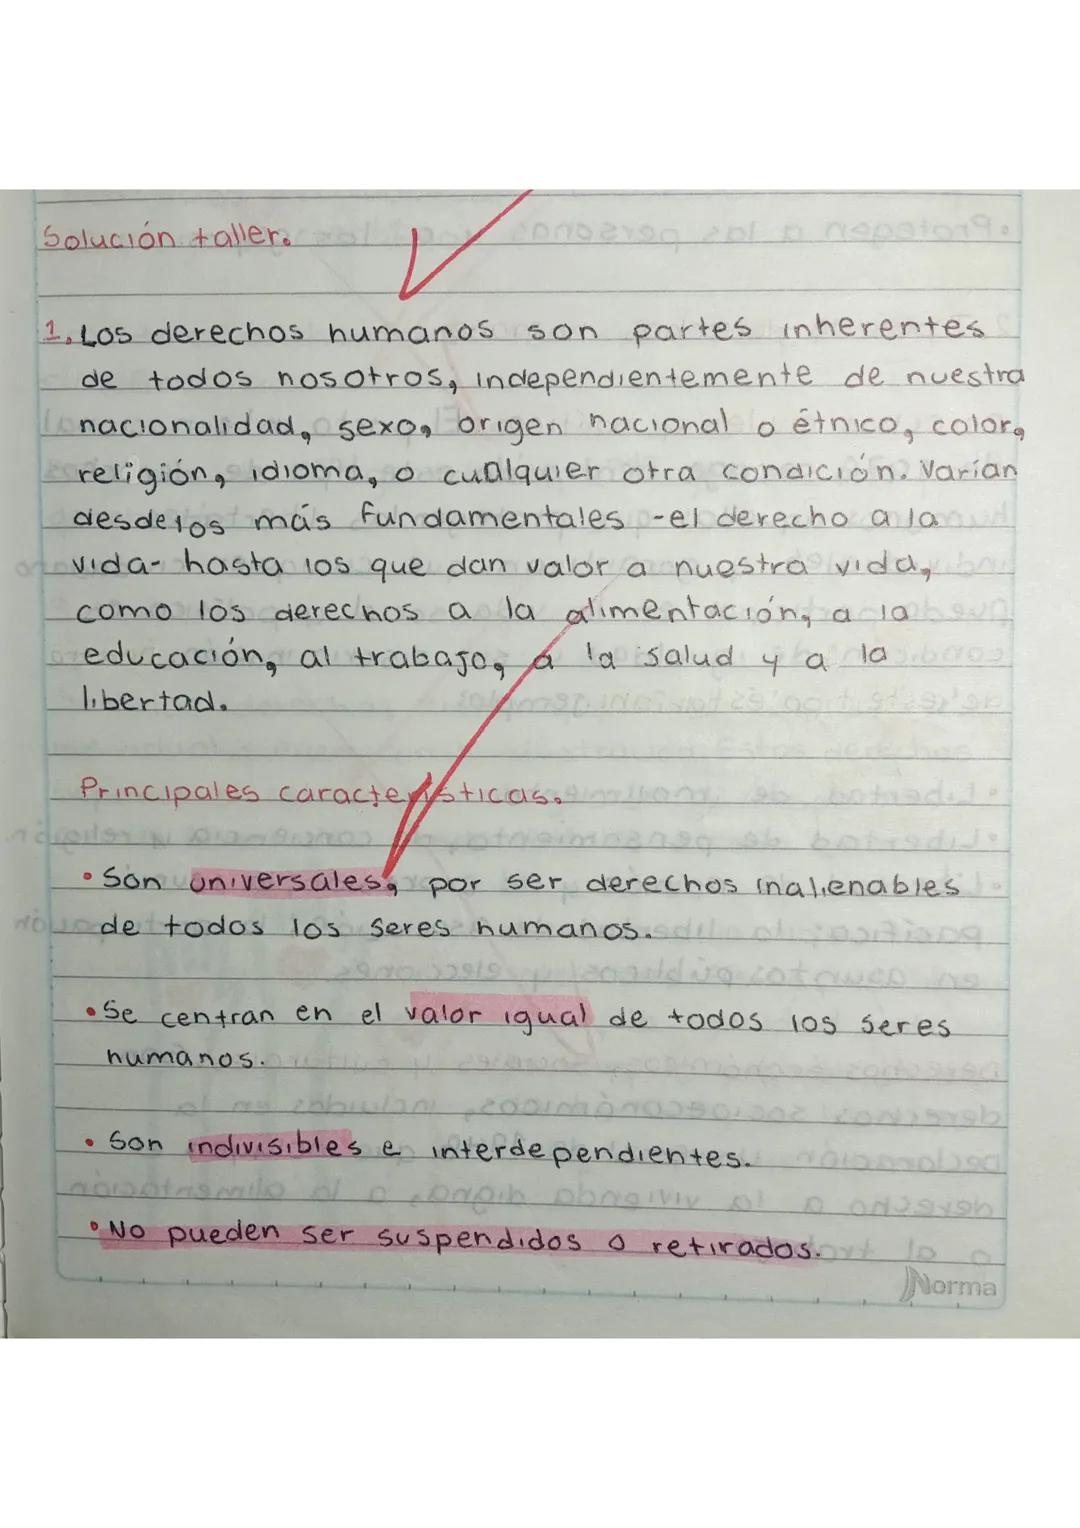 Solución taller.
1. Los derechos humanos son partes inherentes
de todos nosotros, independientemente de nuestra
nacionalidad, sexo, origen nacional o étnico, color,
religión, idioma, o cualquier otra condición. Varían
desde los más fundamentales -el derecho a la
vida- hasta los que dan valor a nuestra vida,
como los derechos a la alimentación, a la
educación, al trabajo, a la salud y a la
libertad.
Principales características.
• Son universales, por ser derechos inalienables
de todos los seres humanos.
• Se centran en el valor igual de todos los seres
humanos.
• Son indivisibles e interdependientes.
• No pueden ser suspendidos o retirados.
Norma